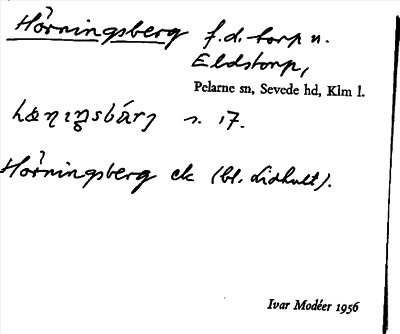 Hörningsberg f.d. torp u.
Eldstorp,
Pelarne sn, Sevede hd, Klm l.
s. 17.
Hörningsberg ek (bl. Lidhult).
Ivar Modéer 1956